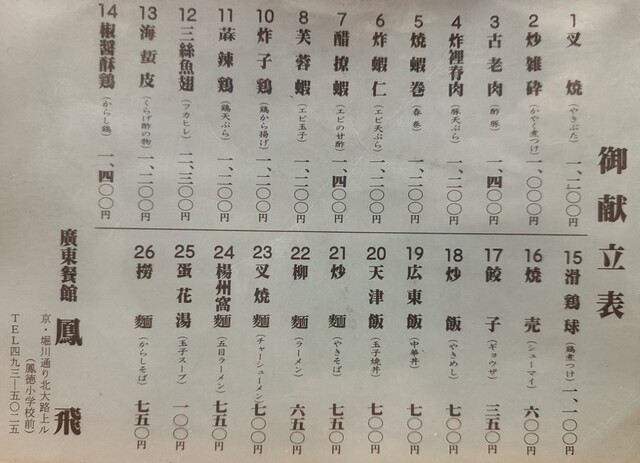 御献立表
1 叉焼(やきぶた) 一、二〇〇円
2 炒雑砕(かやく煮つけ) 一、〇〇〇円
3 古老肉(酢豚) 一、四〇〇円
4 炸裡脊肉(豚天ぷら) 一、二〇〇円
5 焼蝦巻(春巻) 一、二〇〇円
6 炸蝦仁(エビ天ぷら) 一、二〇〇円
7 醋撩蝦(エビの甘酢) 一、四〇〇円
8 芙蓉蝦(エビ玉子) 一、二〇〇円
10 炸子鶏(鶏から揚げ) 一、二〇〇円
11 蔴辣鶏(鶏天ぷら) 一、二〇〇円
12 三絲魚翅(フカヒレ) 二、三〇〇円
13 海蜇皮(くらげ酢の物) 一、二〇〇円
14 椒醤酥鶏(からし鶏) 一、四〇〇円
15 滑鶏球(鶏煮つけ) 一、一〇〇円
16 焼売(シューマイ) 六〇〇円
17 餃子(ギョウザ) 三五〇円
18 炒飯(やきめし) 七〇〇円
19 広東飯(中華丼) 七〇〇円
20 天津飯(玉子焼丼) 七〇〇円
21 炒麺(やきそば) 七五〇円
22 柳麺(ラーメン) 六五〇円
23 叉焼麺(チャーシューメン) 七〇〇円
24 楊州窩麺(五目ラーメン) 七五〇円
25 蛋花湯(玉子スープ) 一〇〇円
26 撈麺(からしそば) 七五〇円
廣東餐館 鳳飛
京・堀川通り北大路上ル
(鳳徳小学校前)
TEL四九三―五〇二五